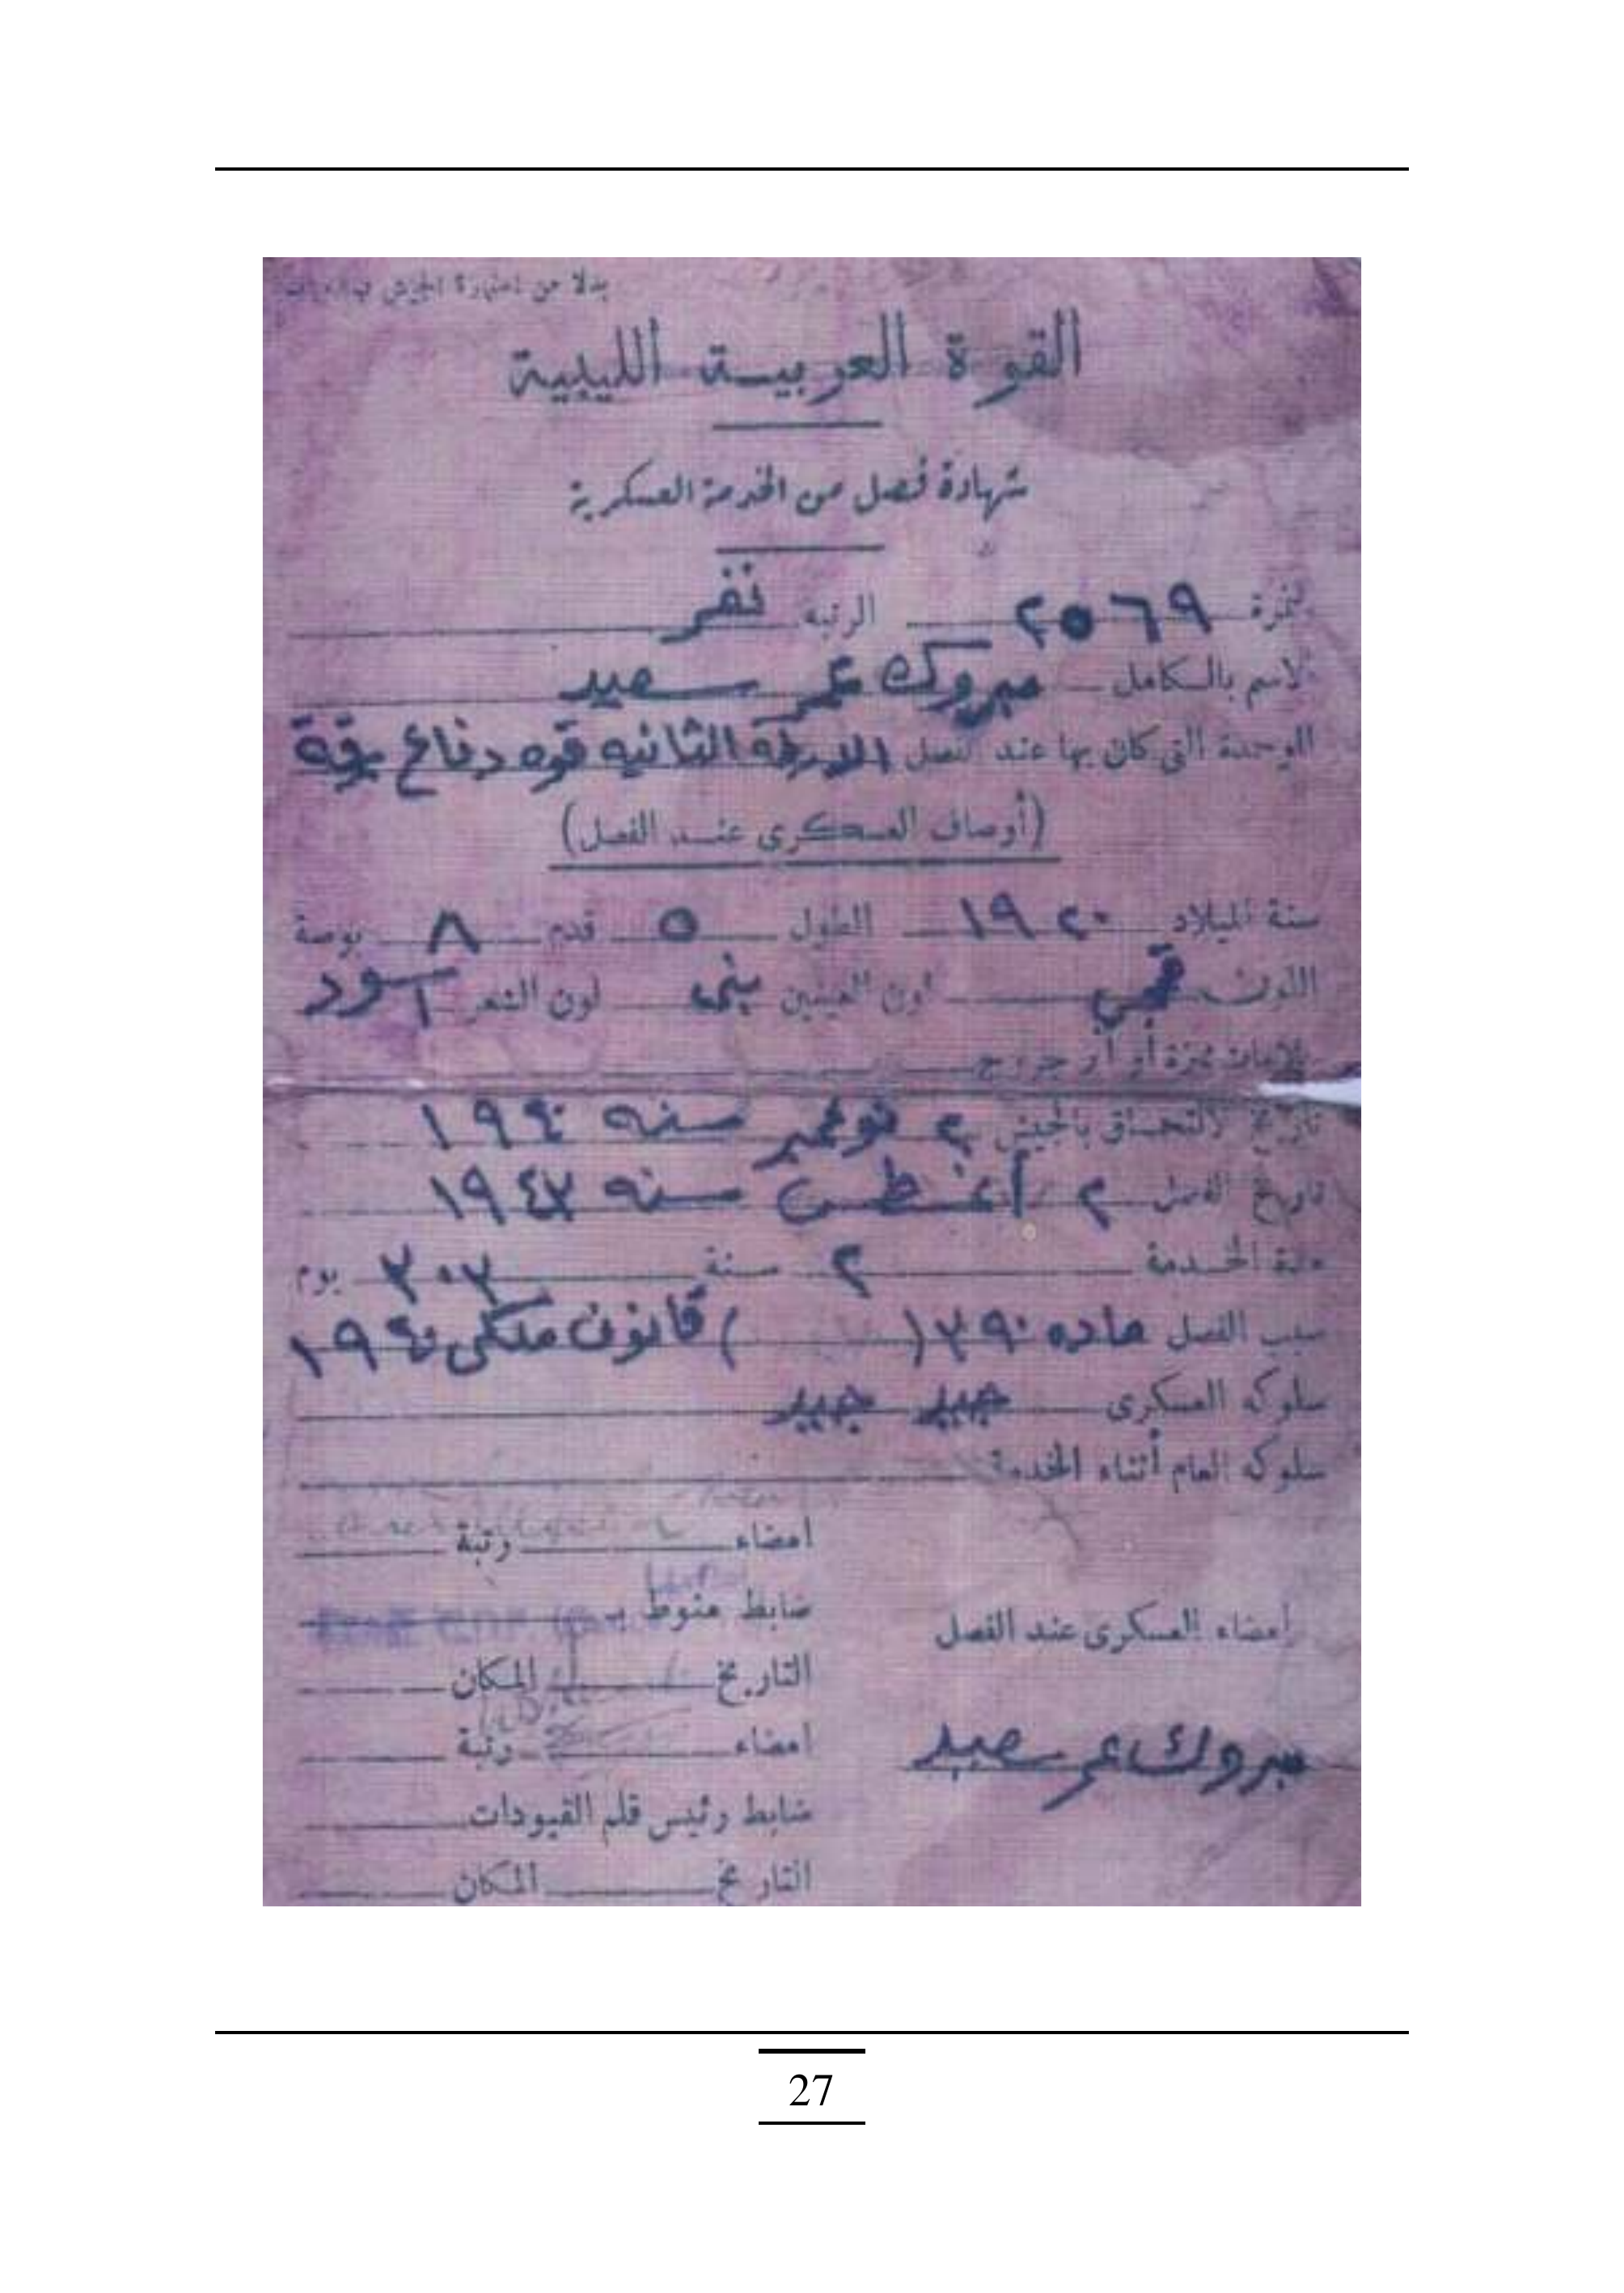 بدلا من استمارة الجيش
القوة العربية الليبية
شهادة فصل من الخدمة العسكرية
نمرة ٢٥٦٩ الرتبه نفر
الاسم بالكامل مبروك عمر سعيد
الوحدة التى كان بها عند الفصل الاورطة الثانيه قوه دفاع برقة
(أوصاف العسكرى عند الفصل)
سنة الميلاد ١٩٢٠ الطول ٥ قدم ٨ بوصة
اللون قمحي لون العينين بنى لون الشعر اسود
علامات مميزة أو أثر جروح
تاريخ الالتحاق بالجيش ٢ نوفمبر سنه ١٩٤٠
تاريخ الفصل ٢ أغسطس سنه
مدة الخدمة ٢ سنة ٣٠٣ يوم
سبب الفصل ماده ٣٩٠ ( ) قانون ملكى ١٩٤٠
سلوكه العسكرى جيد جيد
سلوكه العام أثناء الخدمة
امضاء رتبة
ضابط منوط بـ
امضاء العسكرى عند الفصل
التاريخ المكان
امضاء رتبة
مبروك عمر سعيد
ضابط رئيس قلم القيودات
التاريخ المكان
27